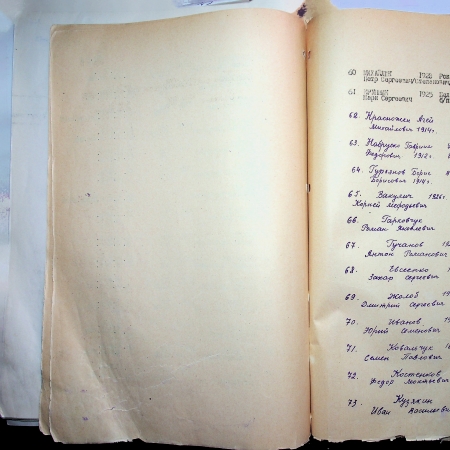 60
Петр Сергеевич
61 1925
Марк Сергеевич
62. Красножен Агей
Михайлович 1914г.
63. Навруско Гаврил
Федорович 1912г.
64. Гургянов Борис
Борисович 1914г.
65. Вакулич 1926г.
Корней Мефодьевич
66. Гарковчук
Роман Яковлевич
67. Гучанов
Антон Романович
68. Евсеенко
Захар Сергеевич
69. Жолоб
Дмитрий Сергеевич
70. Иванов
Юрий Семенович
71. Ковальчук
Семен Павлович
72. Костенков
Федор
73. Кузякин
Иван Васильев